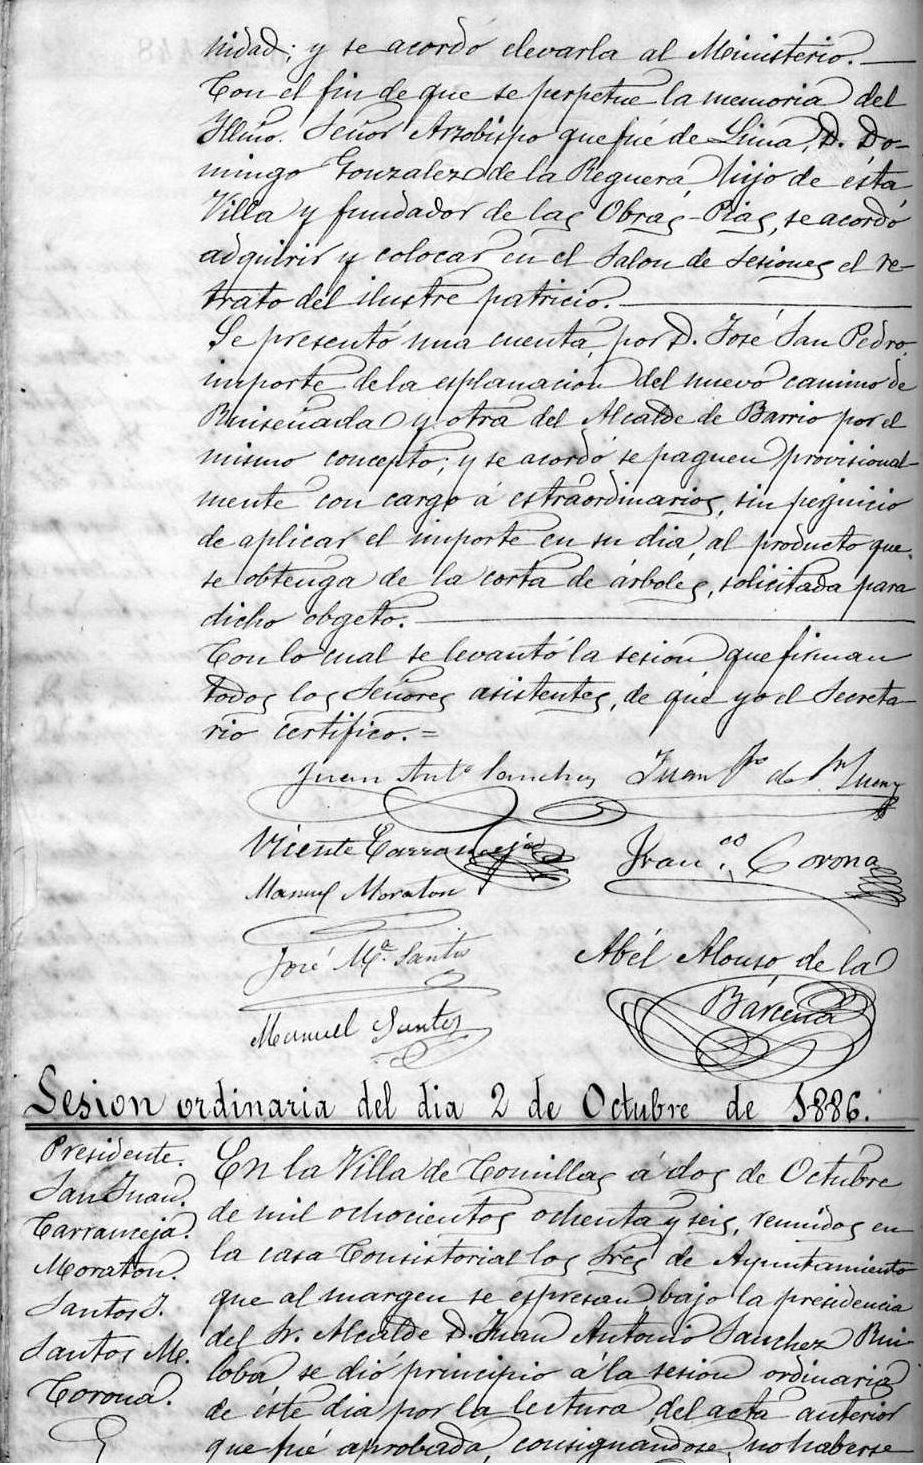 nidad; y se acordó elevarla al Ministerio.
Con el fin de que se perpetue la memoria del
Illmo. Señor Arzobispo que fué de Lima, D. Do-
mingo Gonzalez de la Reguera, hijo de ésta
Villa y fundador de las Obras-Pias, se acordó
adquirir y colocar en el Salon de Sesiones el re-
trato del ilustre patricio.
Se presentó una cuenta, por D. José San Pedro,
importe de la esplanacion del nuevo camino de
Ruiseñada y otra del Alcalde de Barrio por el
mismo concepto; y se acordó se paguen provisional-
mente con cargo á estraordinarios, sin perjuicio
de aplicar el importe en su dia, al producto que
se obtenga de la corta de árboles, solicitada para
dicho obgeto.
Con lo cual se levantó la sesion que firman
todos los Señores asistentes, de que yo el Secreta-
rio certifico.=
Juan Anto Sanchez Juan Fco de Sn Juan
Vicente Carranceja Francco Corona
Manuel Moraton
José Ma Santos
Abél Alonso de la
Bárcena
Manuel Santos
Sesion ordinaria del dia 2 de Octubre de 1886.
Presidente.
San Juan.
Carranceja.
Moraton.
Santos J.
Santos M.
Corona.
En la Villa de Comillas á dos de Octubre
de mil ochocientos ochenta y seis, reunidos en
la casa Consistorial los Sres de Ayuntamiento
que al margen se espresan bajo la presidencia
del Sr. Alcalde D. Juan Antonio Sanchez Rui-
loba se dió principio á la sesion ordinaria
de éste dia por la lectura del acta anterior
que fué aprobada, consignandose no haberse